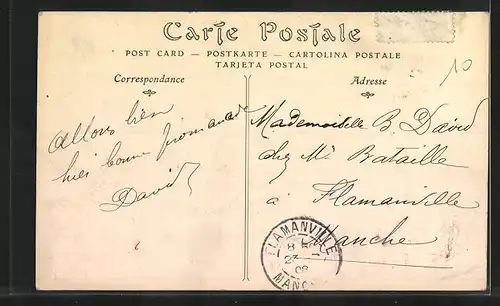 Carte Postale
POST CARD — POSTKARTE — CARTOLINA POSTALE
TARJETA POSTAL
Correspondance
Adresse
10
Allons bien
hier bonne promenade
David
Mademoiselle B. David
chez Mr Bataille
à Flamanville
Manche
FLAMANVILLE
08
MANCHE